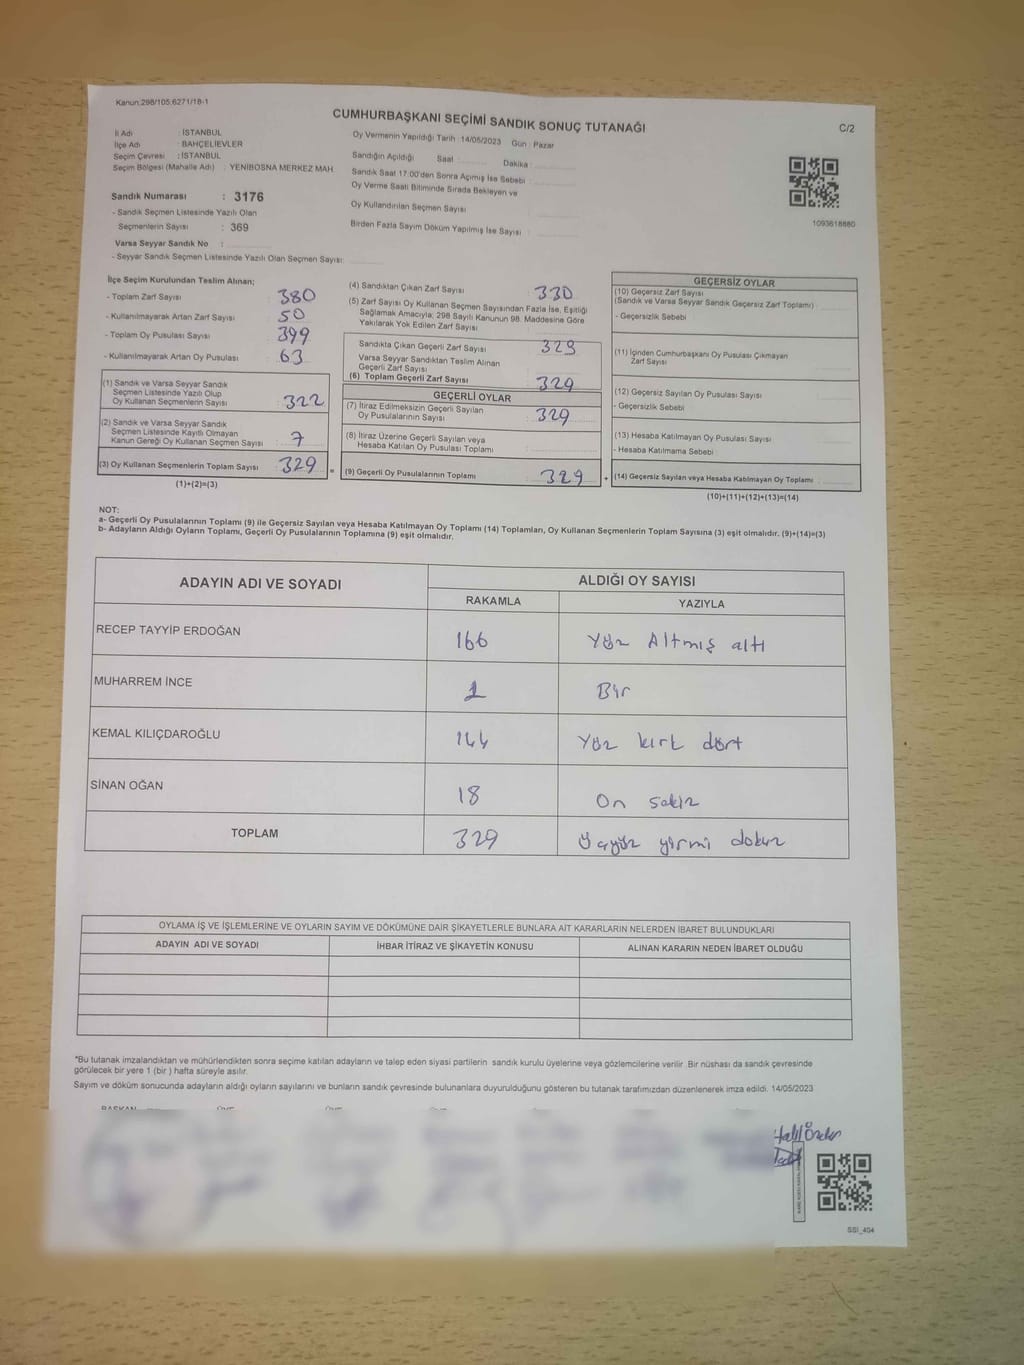 Kanun:298/105,6271/18-1
CUMHURBAŞKANI SEÇİMİ SANDIK SONUÇ TUTANAĞI
C/2
İl Adı : İSTANBUL
İlçe Adı : BAHÇELİEVLER
Seçim Çevresi : İSTANBUL
Seçim Bölgesi (Mahalle Adı) : YENİBOSNA MERKEZ MAH
Sandık Numarası : 3176
- Sandık Seçmen Listesinde Yazılı Olan
Seçmenlerin Sayısı : 369
Varsa Seyyar Sandık No :
- Seyyar Sandık Seçmen Listesinde Yazılı Olan Seçmen Sayısı:
Oy Vermenin Yapıldığı Tarih :14/05/2023 Gün : Pazar
Sandığın Açıldığı Saat : Dakika :
Sandık Saat 17:00'den Sonra Açımış İse Sebebi :
Oy Verme Saati Bitiminde Sırada Bekleyen ve
Oy Kullandırılan Seçmen Sayısı :
Birden Fazla Sayım Döküm Yapılmış İse Sayısı :
1093618880
İlçe Seçim Kurulundan Teslim Alınan;
- Toplam Zarf Sayısı : 380
- Kullanılmayarak Artan Zarf Sayısı : 50
- Toplam Oy Pusulası Sayısı : 399
- Kullanılmayarak Artan Oy Pusulası : 63
(1) Sandık ve Varsa Seyyar Sandık
Seçmen Listesinde Yazılı Olup
Oy Kullanan Seçmenlerin Sayısı : 322
(2) Sandık ve Varsa Seyyar Sandık
Seçmen Listesinde Kayıtlı Olmayan
Kanun Gereği Oy Kullanan Seçmen Sayısı : 7
(3) Oy Kullanan Seçmenlerin Toplam Sayısı : 329
(1)+(2)=(3)
(4) Sandıktan Çıkan Zarf Sayısı : 330
(5) Zarf Sayısı Oy Kullanan Seçmen Sayısından Fazla İse, Eşitliği
Sağlamak Amacıyla; 298 Sayılı Kanunun 98. Maddesine Göre
Yakılarak Yok Edilen Zarf Sayısı :
Sandıkta Çıkan Geçerli Zarf Sayısı : 329
Varsa Seyyar Sandıktan Teslim Alınan
Geçerli Zarf Sayısı :
(6) Toplam Geçerli Zarf Sayısı : 329
GEÇERLİ OYLAR
(7) İtiraz Edilmeksizin Geçerli Sayılan
Oy Pusulalarının Sayısı : 329
(8) İtiraz Üzerine Geçerli Sayılan veya
Hesaba Katılan Oy Pusulası Toplamı :
= (9) Geçerli Oy Pusulalarının Toplamı : 329
GEÇERSİZ OYLAR
(10) Geçersiz Zarf Sayısı
(Sandık ve Varsa Seyyar Sandık Geçersiz Zarf Toplamı) :
- Geçersizlik Sebebi :
(11) İçinden Cumhurbaşkanı Oy Pusulası Çıkmayan
Zarf Sayısı :
(12) Geçersiz Sayılan Oy Pusulası Sayısı :
- Geçersizlik Sebebi :
(13) Hesaba Katılmayan Oy Pusulası Sayısı :
- Hesaba Katılmama Sebebi :
+ (14) Geçersiz Sayılan veya Hesaba Katılmayan Oy Toplamı :
(10)+(11)+(12)+(13)=(14)
NOT:
a- Geçerli Oy Pusulalarının Toplamı (9) ile Geçersiz Sayılan veya Hesaba Katılmayan Oy Toplamı (14) Toplamları, Oy Kullanan Seçmenlerin Toplam Sayısına (3) eşit olmalıdır. (9)+(14)=(3)
b- Adayların Aldığı Oyların Toplamı, Geçerli Oy Pusulalarının Toplamına (9) eşit olmalıdır.
ADAYIN ADI VE SOYADI
ALDIĞI OY SAYISI
RAKAMLA YAZIYLA
RECEP TAYYİP ERDOĞAN 166 Yüz Altmış altı
MUHARREM İNCE 1 Bir
KEMAL KILIÇDAROĞLU 144 Yüz kırk dört
SİNAN OĞAN 18 On sekiz
TOPLAM 329 Üçyüz yirmi dokuz
OYLAMA İŞ VE İŞLEMLERİNE VE OYLARIN SAYIM VE DÖKÜMÜNE DAİR ŞİKAYETLERLE BUNLARA AİT KARARLARIN NELERDEN İBARET BULUNDUKLARI
ADAYIN ADI VE SOYADI İHBAR İTİRAZ VE ŞİKAYETİN KONUSU ALINAN KARARIN NEDEN İBARET OLDUĞU
*Bu tutanak imzalandıktan ve mühürlendikten sonra seçime katılan adayların ve talep eden siyasi partilerin sandık kurulu üyelerine veya gözlemcilerine verilir. Bir nüshası da sandık çevresinde
görülecek bir yere 1 (bir ) hafta süreyle asılır.
Sayım ve döküm sonucunda adayların aldığı oyların sayılarını ve bunların sandık çevresinde bulunanlara duyurulduğunu gösteren bu tutanak tarafımızdan düzenlenerek imza edildi. 14/05/2023
BAŞKAN
SSI_404